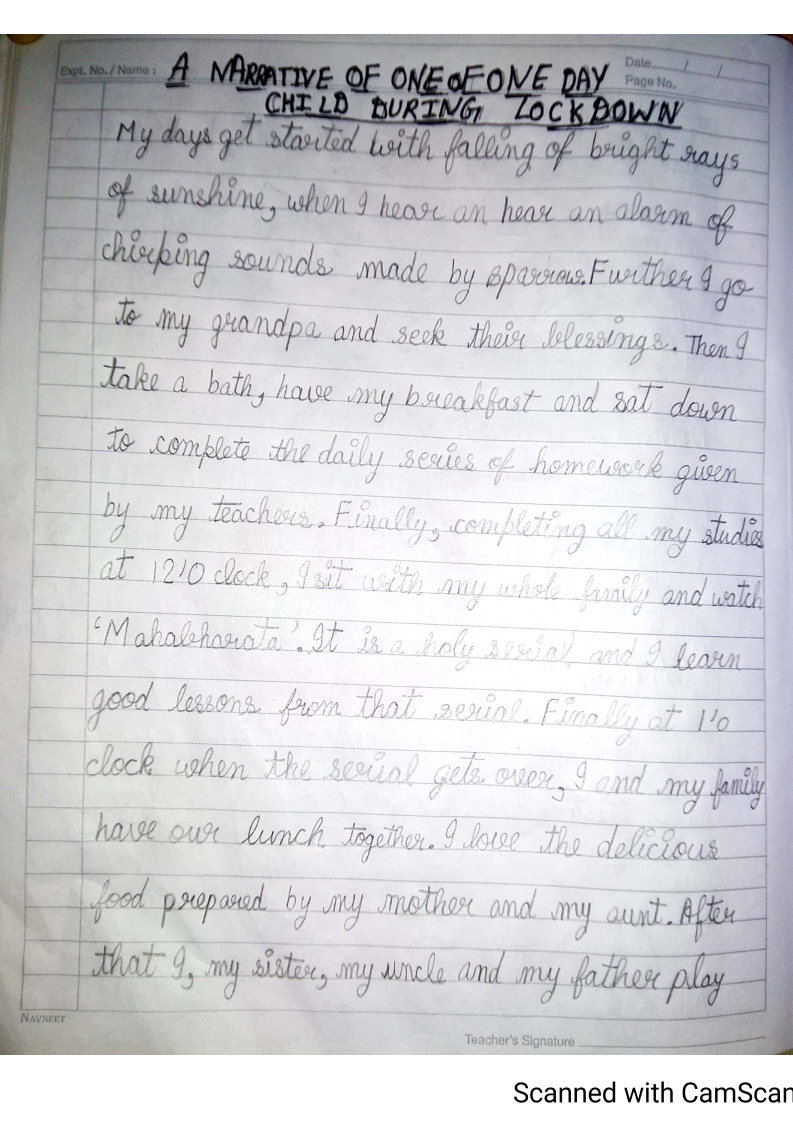 Expt. No. / Name :
Date / /
Page No.
A NARRATIVE OF ONE OF ONE DAY
CHILD DURING LOCKDOWN
My days get started with falling of bright rays
of sunshine, when I hear an hear an alarm of
chirping sounds made by sparrow. Further I go
to my grandpa and seek their blessings. Then I
take a bath, have my breakfast and sat down
to complete the daily series of homework given
by my teachers. Finally, completing all my studies
at 12'0 clock, I sit with my whole family and watch
'Mahabharata'. It is a holy serial and I learn
good lessons from that serial. Finally at 1'o
clock when the serial gets over, I and my family
have our lunch together. I love the delicious
food prepared by my mother and my aunt. After
that I, my sister, my uncle and my father play
NAVNEET
Teacher's Signature
Scanned with CamScan